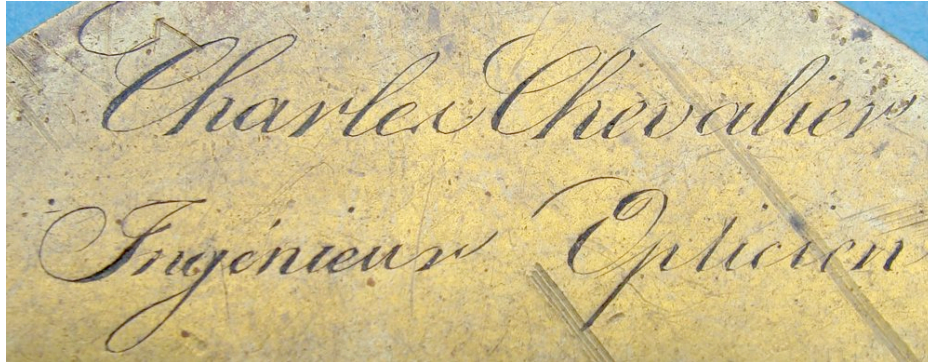 Charles Chevalier
Ingénieur Opticien